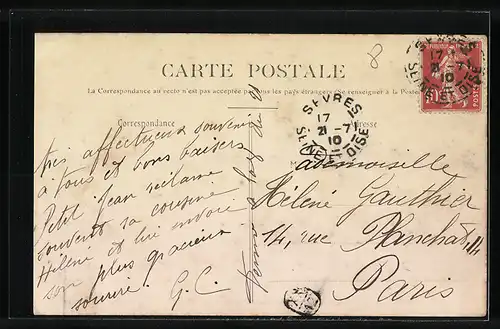 8
CARTE POSTALE
La Correspondance au recto n'est pas acceptée par tous les pays étrangers (Se renseigner à la Poste)
Correspondance
Adresse
SEVRES
17
21 -7
10
SEINE ET OISE
SEVRES
17
21 -7
10
SEINE ET OISE
10
très affectueux souvenir
à tous et bons baisers
Petit Jean réclame
souvent sa cousine
Hélène et lui envoie
son plus gracieux
sourire. G. C.
Mademoiselle
Hélène Gauthier
14, rue Planchat, 14
Paris